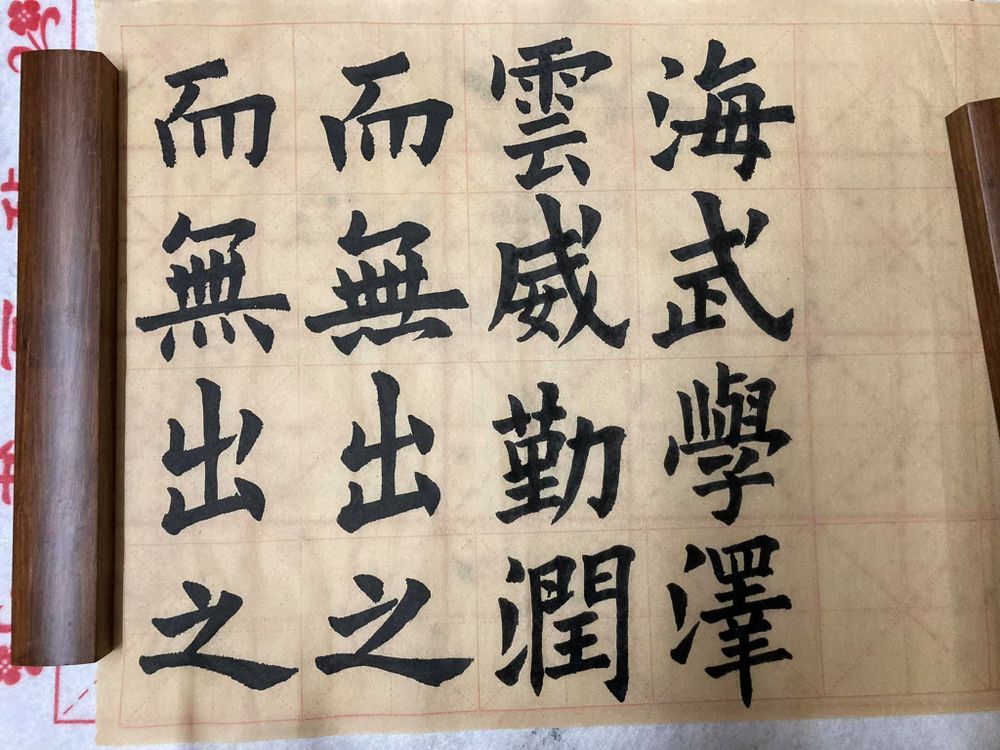 海武學澤
雲威勤潤
而無出之
而無出之